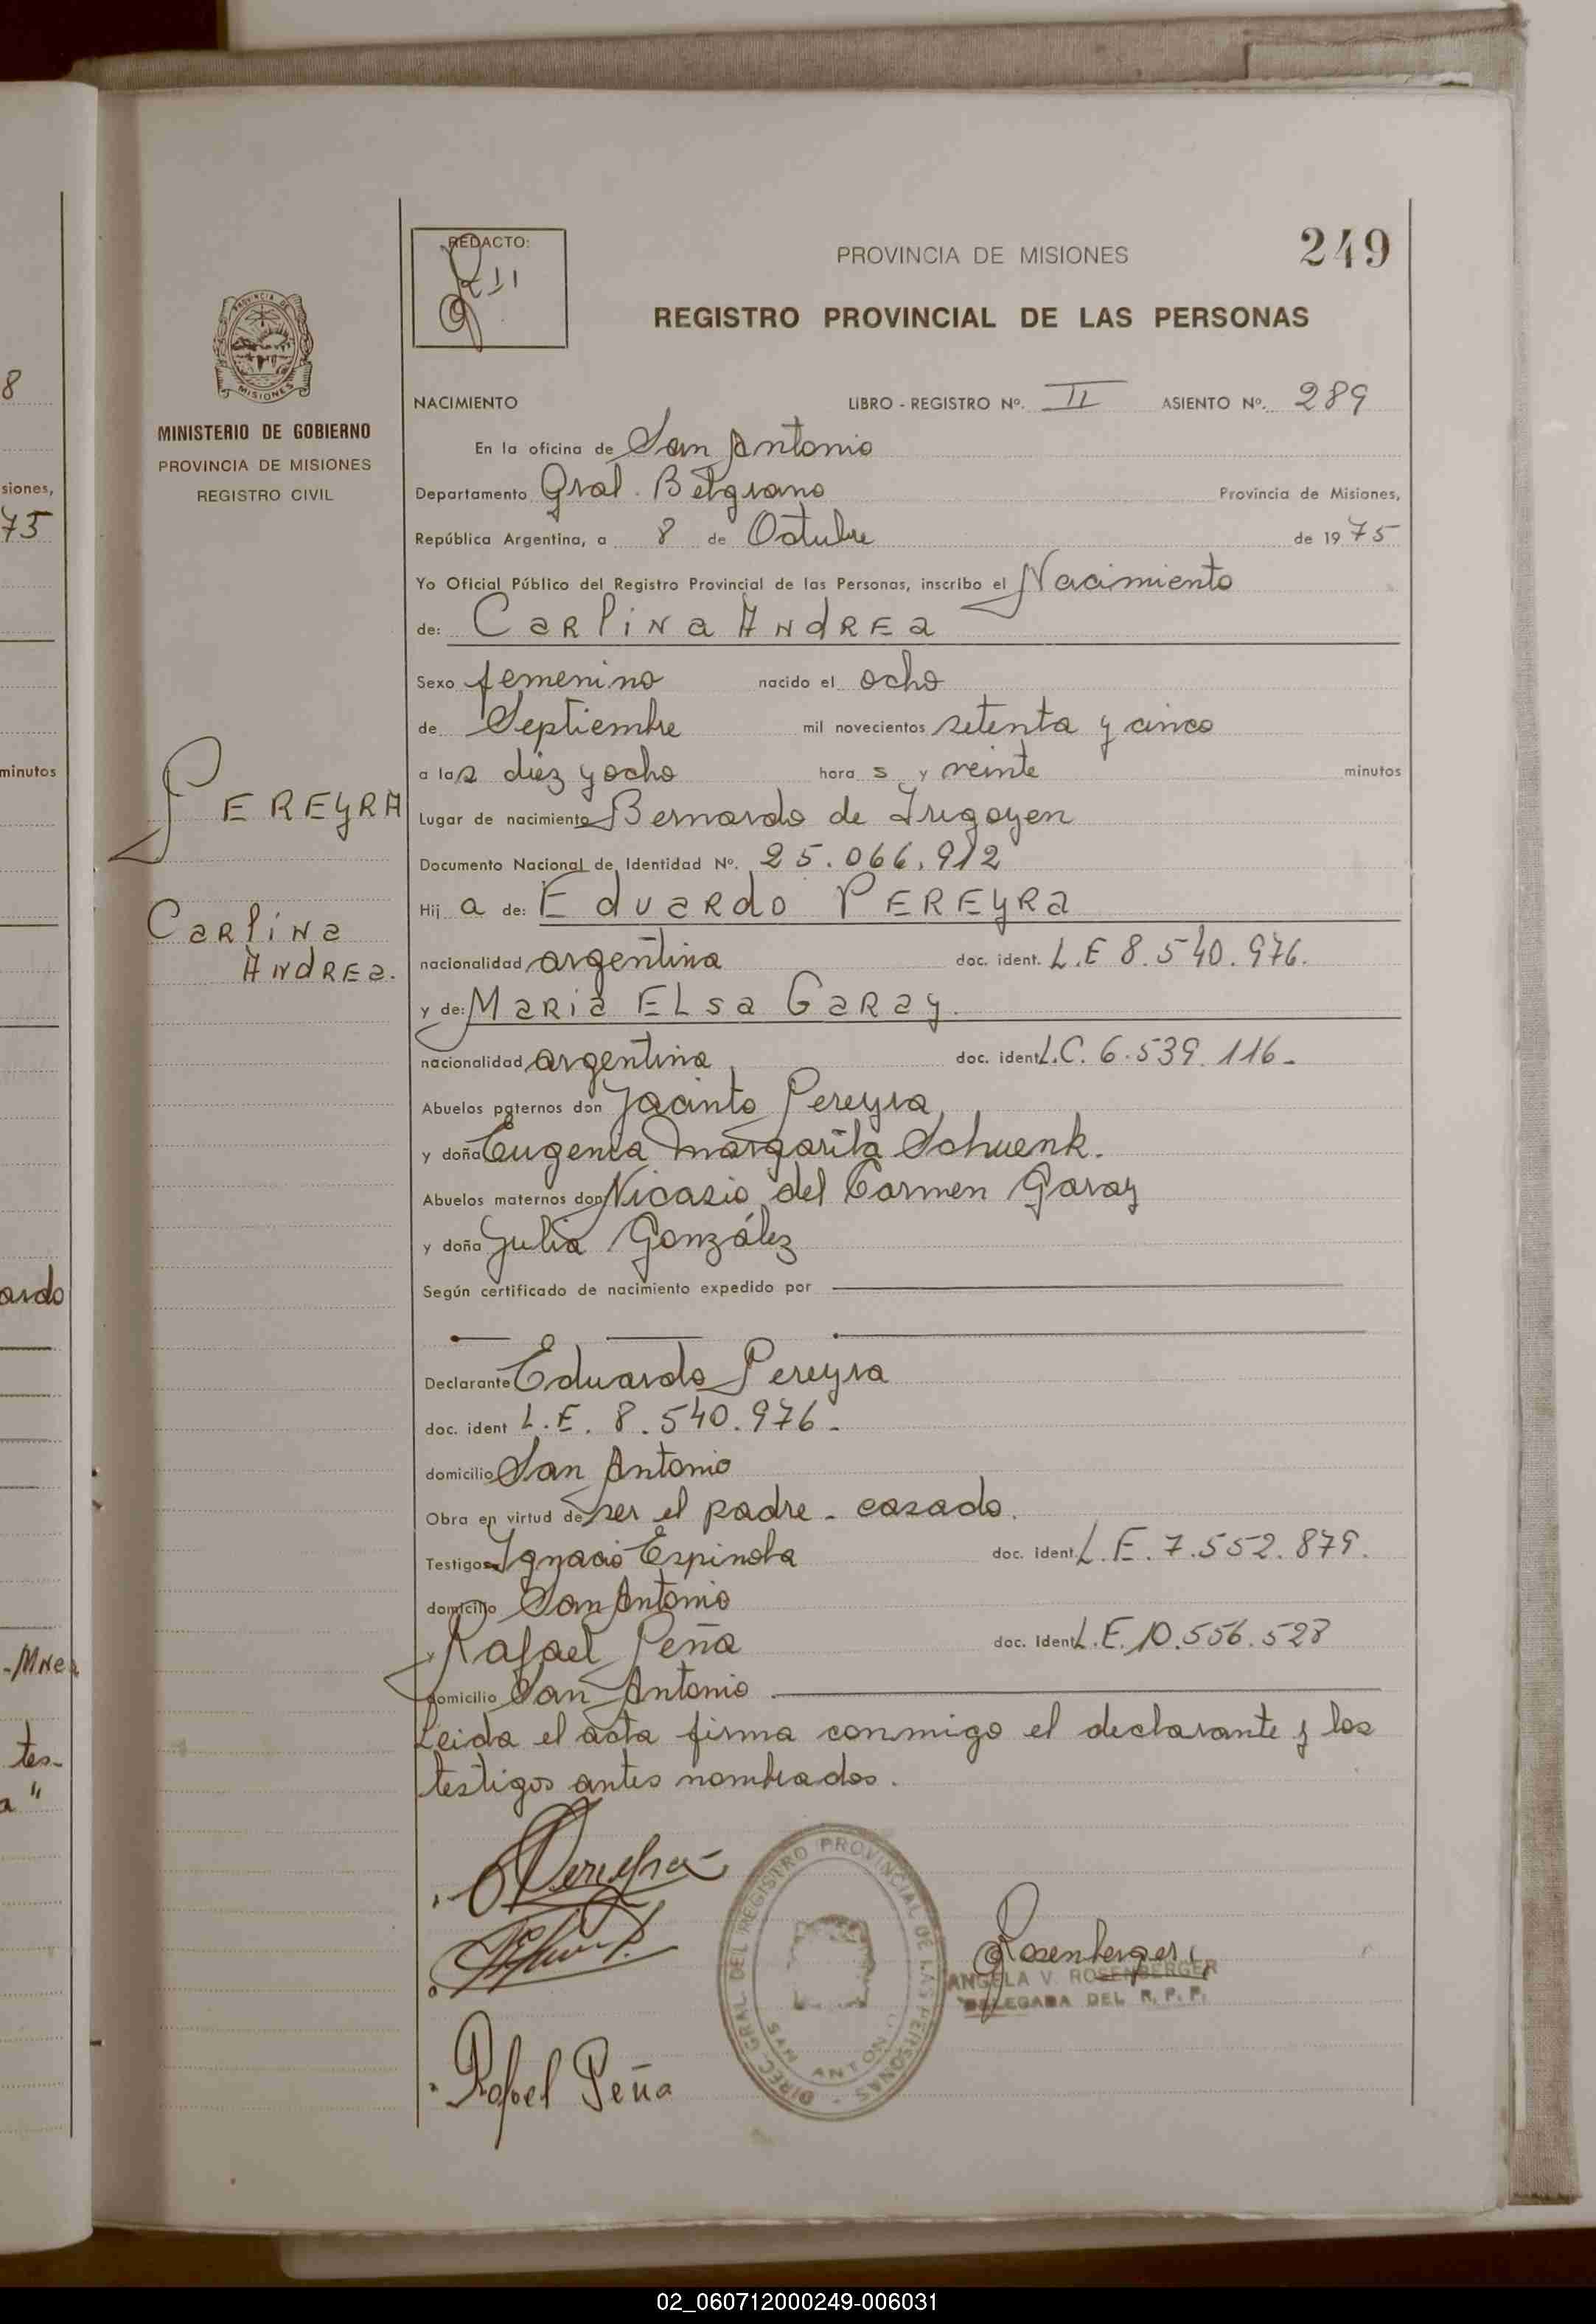 249
REDACTO:
PROVINCIA DE MISIONES
REGISTRO PROVINCIAL DE LAS PERSONAS
MISIONES
MINISTERIO DE GOBIERNO
PROVINCIA DE MISIONES
REGISTRO CIVIL
8
siones,
75
minutos
ardo
tes-
a "
PEREYRA
Carlina
Andrea.
NACIMIENTO LIBRO - REGISTRO Nº. II ASIENTO Nº. 289
En la oficina de San Antonio
Departamento Gral. Belgrano Provincia de Misiones,
República Argentina, a 8 de Octubre de 1975
Yo Oficial Público del Registro Provincial de las Personas, inscribo el Nacimiento
de: Carlina Andrea
Sexo femenino nacido el ocho
de Septiembre mil novecientos setenta y cinco
a las diez y ocho hora s y veinte minutos
Lugar de nacimiento Bernardo de Irigoyen
Documento Nacional de Identidad Nº. 25.066.912
Hij a de: Eduardo PEREYRa
nacionalidad argentina doc. ident. L.E 8.540.976.
y de: Maria Elsa Garay.
nacionalidad argentina doc. ident. L.C. 6.539.116-
Abuelos paternos don Jacinto Pereyra
y doña Eugenia Margarita Schuenk.
Abuelos maternos don Nicasio del Carmen Garay
y doña Julia González
Según certificado de nacimiento expedido por
Declarante Eduardo Pereyra
doc. ident L.E. 8.540.976-
domicilio San Antonio
Obra en virtud de ser el padre - casado.
Testigos Ignacio Espinola doc. ident. L.E. 7.552.879.
domicilio San Antonio
y Rafael Peña doc. Ident. L.E. 10.556.528
domicilio San Antonio
Leida el acta firma conmigo el declarante y los
testigos antes nombrados.
Pereyra
DIREC. GRAL. DEL REGISTRO PROVINCIAL DE LAS PERSONAS -
SAN ANTONIO
Rosenberger
ANGELA V. ROSENBERGER
DELEGADA DEL R. P. P.
Rafael Peña
02_060712000249-006031